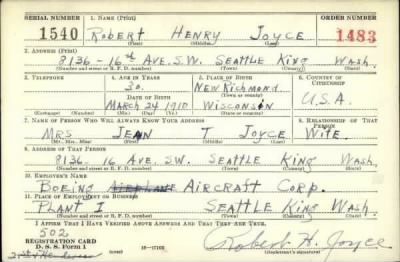 SERIAL NUMBER 1. NAME (Print) ORDER NUMBER
1540 ROBERT HENRY JOYCE 1483
(First) (Middle) (Last)
2. ADDRESS (Print)
8136 - 16th AVE. S.W. SEATTLE KING WASH.
(Number and street or R. F. D. number) (Town) (County) (State)
3. TELEPHONE 4. AGE IN YEARS 5. PLACE OF BIRTH 6. COUNTRY OF CITIZENSHIP
30 NEW RICHMOND
DATE OF BIRTH (Town or county)
MARCH 24 1910 WISCONSIN U.S.A.
(Exchange) (Number) (Mo.) (Day) (Yr.) (State or country)
7. NAME OF PERSON WHO WILL ALWAYS KNOW YOUR ADDRESS 8. RELATIONSHIP OF THAT PERSON
MRS JEAN T JOYCE WIFE
(Mr., Mrs., Miss) (First) (Middle) (Last)
9. ADDRESS OF THAT PERSON
8136 - 16 AVE. SW. SEATTLE KING WASH.
(Number and street or R. F. D. number) (Town) (County) (State)
10. EMPLOYER'S NAME
BOEING AIRPLANE AIRCRAFT CORP.
11. PLACE OF EMPLOYMENT OR BUSINESS
PLANT I SEATTLE KING WASH.
(Number and street or R. F. D. number) (Town) (County) (State)
I AFFIRM THAT I HAVE VERIFIED ABOVE ANSWERS AND THAT THEY ARE TRUE.
502
REGISTRATION CARD
D. S. S. Form 1 Robert H. Joyce
(Registrant's signature)